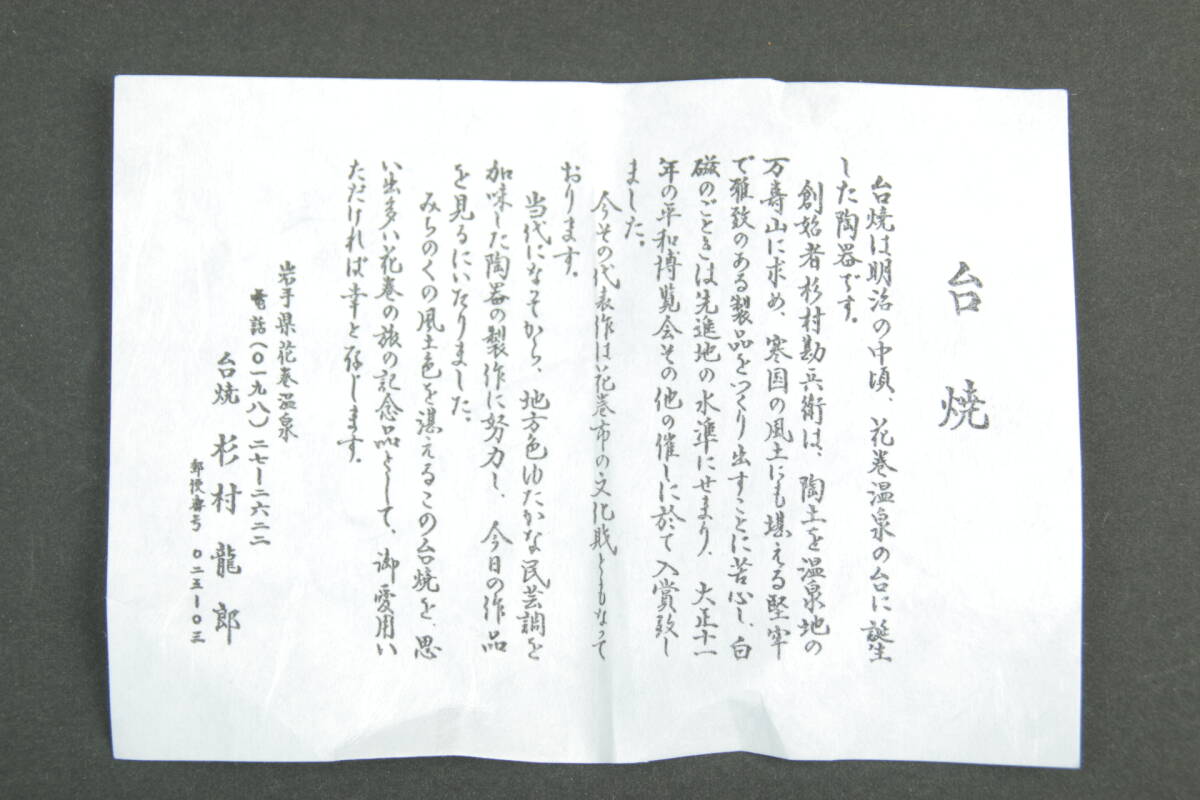 台焼
台焼は明治の中頃、花巻温泉の台に誕生
した陶器です。
創始者杉村勘兵衛は、陶土を温泉地の
万寿山に求め、寒国の風土にも堪える堅牢
で雅致のある製品をつくり出すことに苦心し、白
磁のごときは先進地の水準にせまり、大正十一
年の平和博覧会その他の催しに於て入賞致し
ました。
今その代表作は花巻市の文化財ともなって
おります。
当代になってから、地方色ゆたかな民芸調を
加味した陶器の製作に努力し、今日の作品
を見るにいたりました。
みちのくの風土色を湛えるこの台焼を、思
い出多い花巻の旅の記念品として、御愛用い
ただければ幸と存じます。
岩手県花巻温泉
電話(〇一九八)二七―二六二二
台焼 杉村龍郎
郵便番号 〇二五―〇三